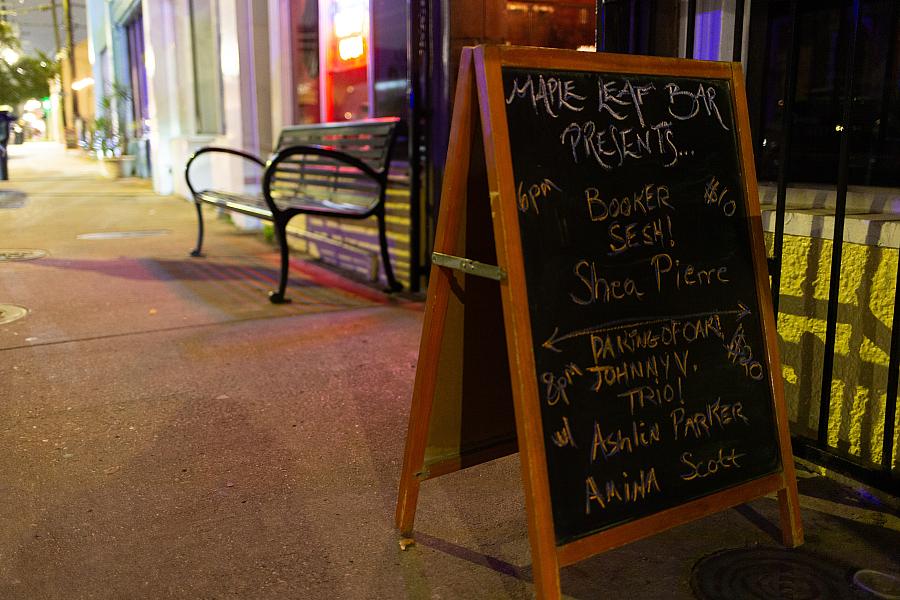 MAPLE LEAF BAR
PRESENTS...
6pm BOOKER $10
SESH!
Shea Pierre
DA KING OF OAK!
8pm JOHNNY V. $20
TRIO!
w/ Ashlin PARKER
AMINA Scott